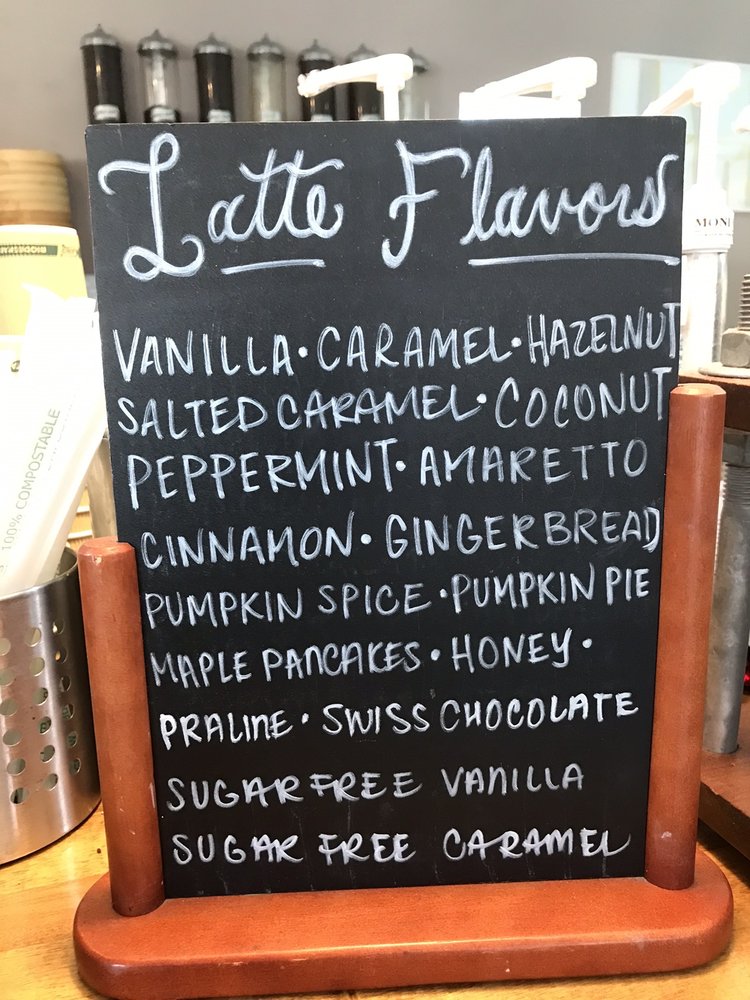 Latte Flavors
VANILLA · CARAMEL · HAZELNUT
SALTED CARAMEL · COCONUT
PEPPERMINT · AMARETTO
CINNAMON · GINGERBREAD
PUMPKIN SPICE · PUMPKIN PIE
MAPLE PANCAKES · HONEY ·
PRALINE · SWISS CHOCOLATE
SUGAR FREE VANILLA
SUGAR FREE CARAMEL
100% COMPOSTABLE